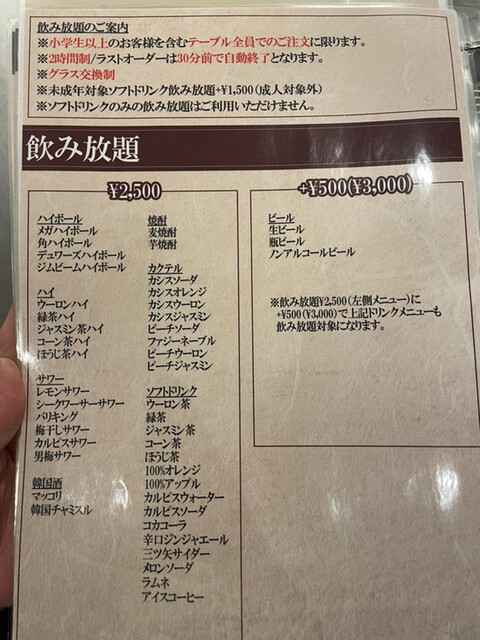 飲み放題のご案内
※小学生以上のお客様を含むテーブル全員でのご注文に限ります。
※2時間制/ラストオーダーは30分前で自動終了となります。
※グラス交換制
※未成年対象ソフトドリンク飲み放題+¥1,500(成人対象外)
※ソフトドリンクのみの飲み放題はご利用いただけません。
飲み放題
¥2,500
ハイボール
メガハイボール
角ハイボール
デュワーズハイボール
ジムビームハイボール
ハイ
ウーロンハイ
緑茶ハイ
ジャスミン茶ハイ
コーン茶ハイ
ほうじ茶ハイ
サワー
レモンサワー
シークワーサーサワー
バリキング
梅干しサワー
カルピスサワー
男梅サワー
韓国酒
マッコリ
韓国チャミスル
焼酎
麦焼酎
芋焼酎
カクテル
カシスソーダ
カシスオレンジ
カシスウーロン
カシスジャスミン
ピーチソーダ
ファジーネーブル
ピーチウーロン
ピーチジャスミン
ソフトドリンク
ウーロン茶
緑茶
ジャスミン茶
コーン茶
ほうじ茶
100%オレンジ
100%アップル
カルピスウォーター
カルピスソーダ
コカコーラ
辛口ジンジャエール
三ツ矢サイダー
メロンソーダ
ラムネ
アイスコーヒー
+¥500(¥3,000)
ビール
生ビール
瓶ビール
ノンアルコールビール
※飲み放題¥2,500(左側メニュー)に
+¥500(¥3,000)で上記ドリンクメニューも
飲み放題対象になります。